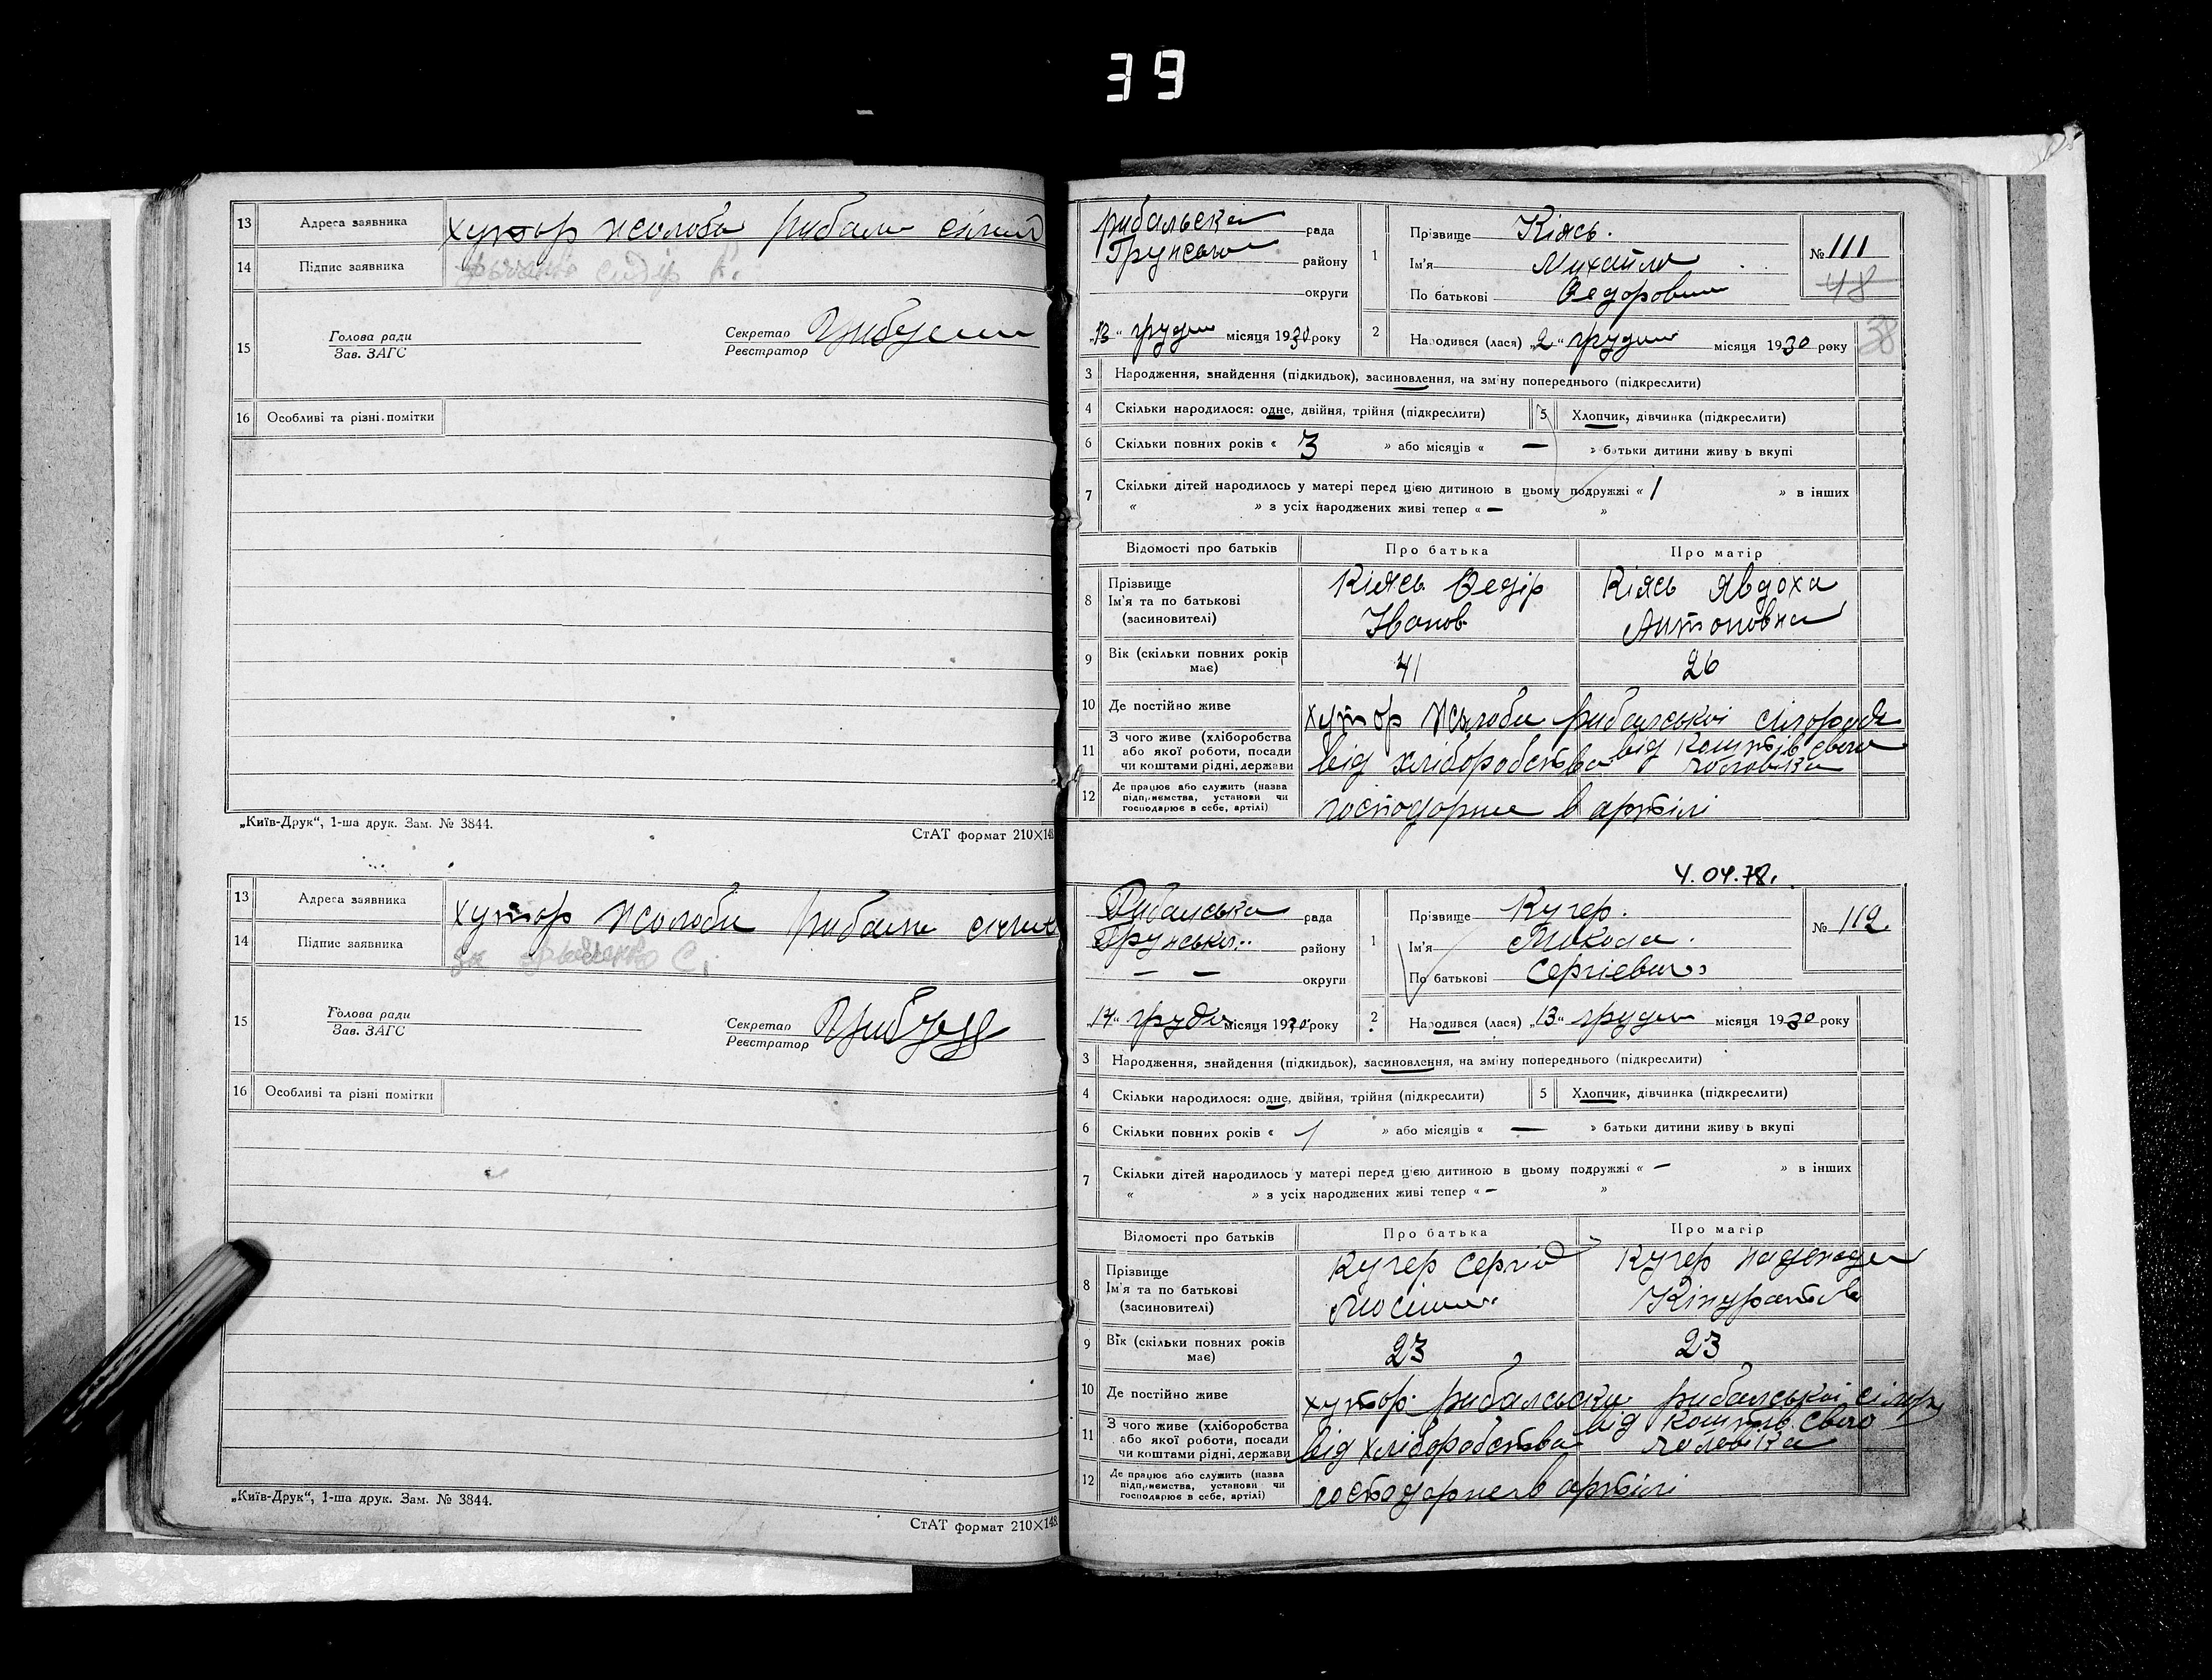 39
13 Адреса заявника хутор Жолоби
14 Підпис заявника Сидір
15 Голова ради
Зав. ЗАГС
Секретар
Реєстратор
16 Особливі та різні помітки
„Київ-Друк“, 1-ша друк. Зам. № 3844.
СтАТ формат 210×148
13 Адреса заявника хутор Жолоби
14 Підпис заявника
15 Голова ради
Зав. ЗАГС
Секретар
Реєстратор
16 Особливі та різні помітки
„Київ-Друк“, 1-ша друк. Зам. № 3844.
СтАТ формат 210×148
Рибальська рада
Грунський району
округи
„13“ грудня місяця 1930 року
1 Прізвище Кіясь.
Ім'я Михайло
По батькові Федорович
№ 111
48
38
2 Народився (лася) „2“ грудня місяця 1930 року
3 Народження, знайдення (підкидьок), засиновлення, на зміну попереднього (підкреслити)
4 Скільки народилося: одне, двійня, трійня (підкреслити) 5 Хлопчик, дівчинка (підкреслити)
6 Скільки повних років « 3 » або місяців « — » батьки дитини живуть вкупі
7 Скільки дітей народилось у матері перед цією дитиною в цьому подружжі « 1 » в інших
« » з усіх народжених живі тепер « — »
Відомості про батьків Про батька Про матір
8 Прізвище
Ім'я та по батькові
(засиновителі)
Кіясь Федір
Іванов.
Кіясь Явдоха
Антоновна
9 Вік (скільки повних років має) 41 26
10 Де постійно живе хутор Жолоби рибальської сільради
11 З чого живе (хліборобства або якої роботи, посади чи коштами рідні, держави від хліборобства від коштів свого чоловіка
12 Де працює або служить (назва підприємства, установи чи господарює в себе, артілі) господарює в артілі
4.04.78.
Рибальська рада
Грунський району
— — округи
„14“ грудня місяця 1930 року
1 Прізвище Кучер.
Ім'я Микола.
По батькові Сергієвич
№ 112.
2 Народився (лася) „13“ грудня місяця 1930 року
3 Народження, знайдення (підкидьок), засиновлення, на зміну попереднього (підкреслити)
4 Скільки народилося: одне, двійня, трійня (підкреслити) 5 Хлопчик, дівчинка (підкреслити)
6 Скільки повних років « 1 » або місяців « — » батьки дитини живуть вкупі
7 Скільки дітей народилось у матері перед цією дитиною в цьому подружжі « — » в інших
« » з усіх народжених живі тепер « — »
Відомості про батьків Про батька Про матір
8 Прізвище
Ім'я та по батькові
(засиновителі)
Кучер Сергій
Кучер
9 Вік (скільки повних років має) 23 23
10 Де постійно живе хутор рибальської
11 З чого живе (хліборобства або якої роботи, посади чи коштами рідні, держави від хліборобства від коштів свого чоловіка
12 Де працює або служить (назва підприємства, установи чи господарює в себе, артілі) господарює в артілі